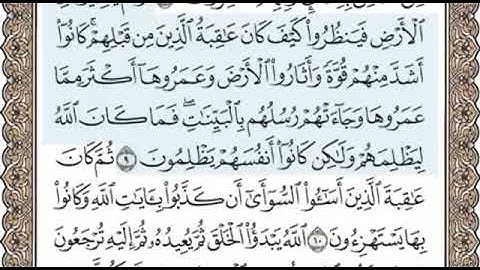 ٱلْأَرْضِ فَيَنظُرُوا۟ كَيْفَ كَانَ عَٰقِبَةُ ٱلَّذِينَ مِن قَبْلِهِمْ ۚ كَانُوٓا۟
أَشَدَّ مِنْهُمْ قُوَّةً وَأَثَارُوا۟ ٱلْأَرْضَ وَعَمَرُوهَآ أَكْثَرَ مِمَّا
عَمَرُوهَا وَجَآءَتْهُمْ رُسُلُهُم بِٱلْبَيِّنَٰتِ ۖ فَمَا كَانَ ٱللَّهُ
لِيَظْلِمَهُمْ وَلَٰكِن كَانُوٓا۟ أَنفُسَهُمْ يَظْلِمُونَ ٩ ثُمَّ كَانَ
عَٰقِبَةَ ٱلَّذِينَ أَسَٰٓـُٔوا۟ ٱلسُّوٓأَىٰٓ أَن كَذَّبُوا۟ بِـَٔايَٰتِ ٱللَّهِ وَكَانُوا۟
بِهَا يَسْتَهْزِءُونَ ١٠ ٱللَّهُ يَبْدَؤُا۟ ٱلْخَلْقَ ثُمَّ يُعِيدُهُۥ ثُمَّ إِلَيْهِ تُرْجَعُونَ